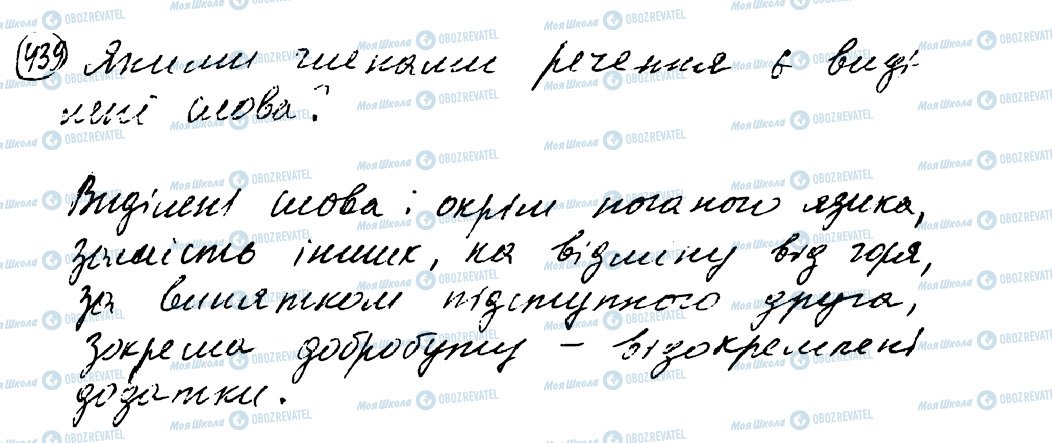 439 Якими членами речення є виді
лені слова?
Виділені слова: окрім поганого язика,
замість інших, на відміну від горя,
за винятком підступного друга,
зокрема добробуту – відокремлені
додатки.